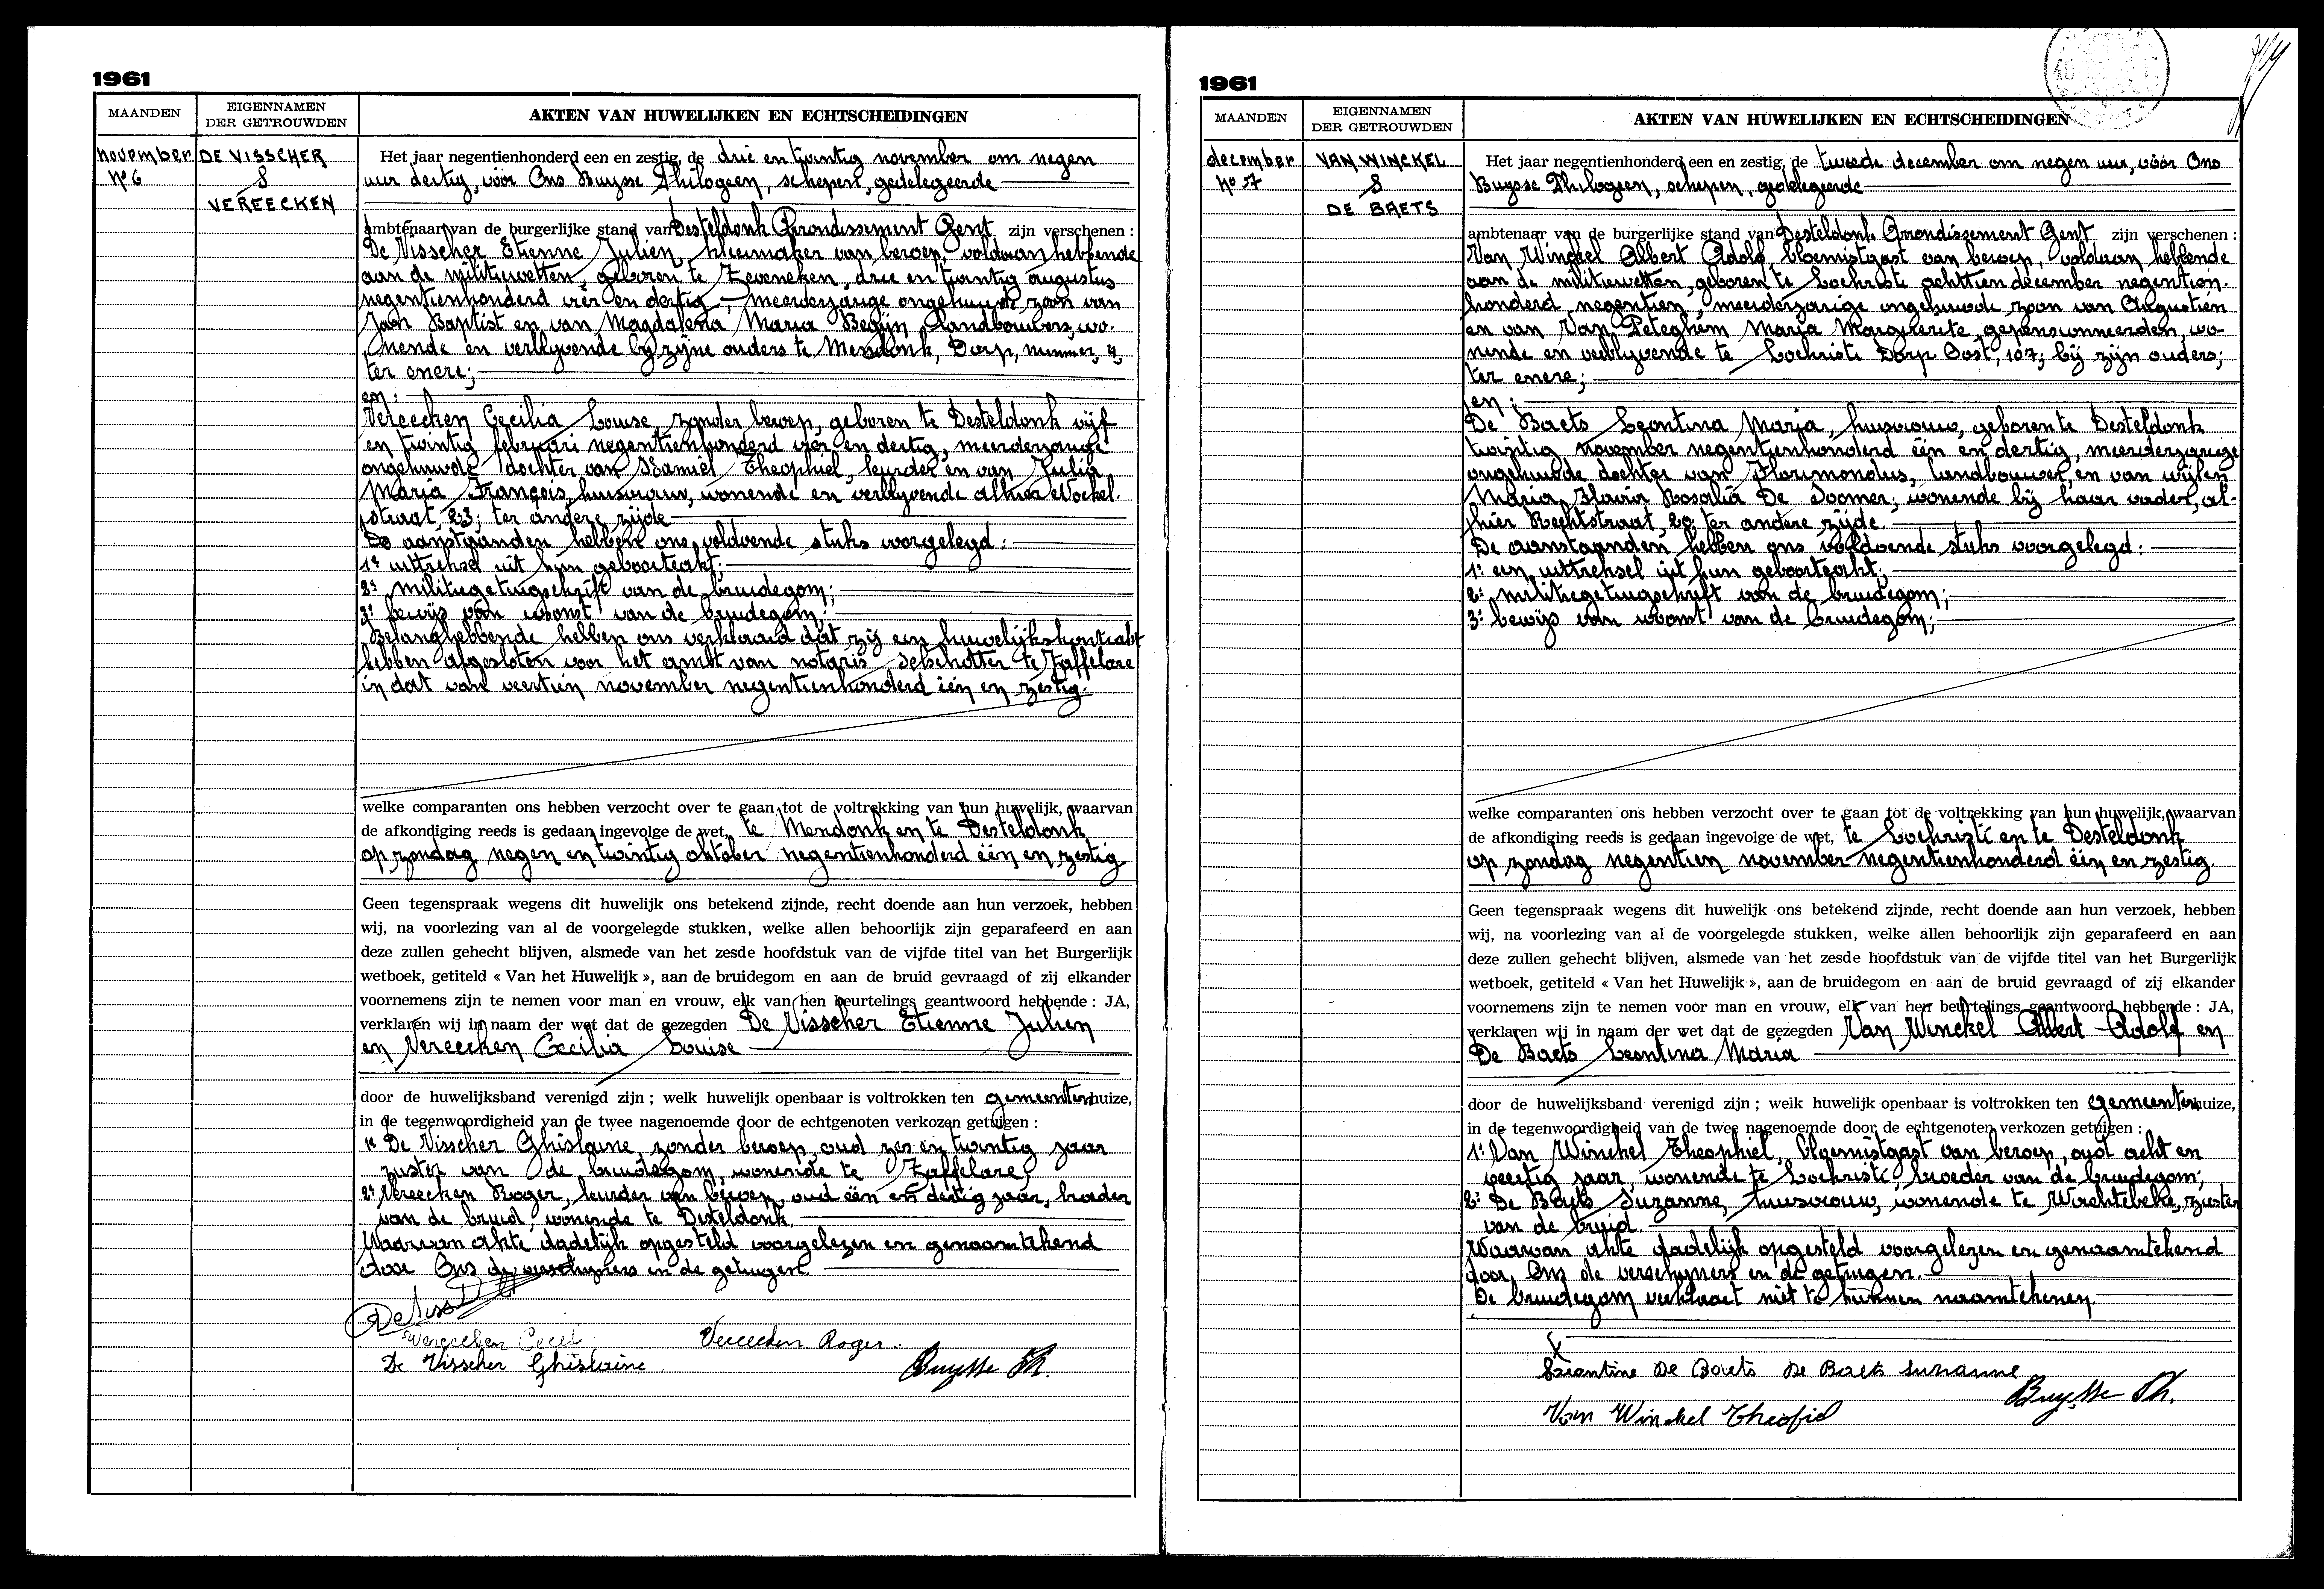 1961
MAANDEN
EIGENNAMEN
DER GETROUWDEN
AKTEN VAN HUWELIJKEN EN ECHTSCHEIDINGEN
november
No 6
DE VISSCHER
&
VEREECKEN
Het jaar negentienhonderd een en zestig, de drie en twintig november om negen
uur dertig, vóór Ons Buysse Philogeen, schepen, gedelegeerde
ambtenaar van de burgerlijke stand van Desteldonk Arrondissement Gent zijn verschenen :
De Visscher Etienne Julien, van beroep, voldaan hebbende
aan de militiewetten, geboren te Zeveneken, drie en twintig augustus
negentienhonderd vier en dertig, meerderjarige ongehuwde zoon van
Jan Baptist en van Magdalena Maria Begijn, landbouwers, wo-
nende en verblyvende by zyne ouders te Mendonk, Dorp, nummer, 4,
ter enere;
en :
Vereecken Cecilia Louise, zonder beroep, geboren te Desteldonk vijf
en twintig februari negentienhonderd vier en dertig, meerderjarige
ongehuwde dochter van Kamiel Theophiel, leurder en van Julia
Maria François, huisvrouw, wonende en verblyvende alhier Moekel-
straat, 23; ter andere zijde
De aanstaanden hebben ons voldoende stuks voorgelegd :
1° uittreksel uit hun geboorteakt;
2° militiegetuigschrift van de bruidegom;
3° bewijs van woonst van de bruidegom;
Belanghebbende hebben ons verklaard dat zij een huwelijkskontrakt
hebben afgesloten voor het ambt van notaris te Zaffelare
in dat van veertien november negentienhonderd één en zestig.
welke comparanten ons hebben verzocht over te gaan tot de voltrekking van hun huwelijk, waarvan
de afkondiging reeds is gedaan ingevolge de wet, te Mendonk en te Desteldonk
op zondag negen en twintig oktober negentienhonderd één en zestig
Geen tegenspraak wegens dit huwelijk ons betekend zijnde, recht doende aan hun verzoek, hebben
wij, na voorlezing van al de voorgelegde stukken, welke allen behoorlijk zijn geparafeerd en aan
deze zullen gehecht blijven, alsmede van het zesde hoofdstuk van de vijfde titel van het Burgerlijk
wetboek, getiteld « Van het Huwelijk », aan de bruidegom en aan de bruid gevraagd of zij elkander
voornemens zijn te nemen voor man en vrouw, elk van hen beurtelings geantwoord hebbende : JA,
verklaren wij in naam der wet dat de gezegden De Visscher Etienne Julien
en Vereecken Cecilia Louise
door de huwelijksband verenigd zijn ; welk huwelijk openbaar is voltrokken ten gemeentenhuize,
in de tegenwoordigheid van de twee nagenoemde door de echtgenoten verkozen getuigen :
1° De Visscher Ghislaine, zonder beroep, oud zes en twintig jaar
zuster van de bruidegom, wonende te Zaffelare;
2° Vereecken Roger, leurder van beroep, oud één en dertig jaar, broeder
van de bruid, wonende te Desteldonk.
Waarvan akte dadelijk opgesteld voorgelezen en genaamtekend
door Ons de verschyners en de getuigen.
De Viss
Vereecken Cecil Vereecken Roger.
De Visscher Ghislaine Buysse Ph.
1961
MAANDEN
EIGENNAMEN
DER GETROUWDEN
AKTEN VAN HUWELIJKEN EN ECHTSCHEIDINGEN
december
No 7
VAN WINCKEL
&
DE BAETS
Het jaar negentienhonderd een en zestig, de tweede december om negen uur, vóór Ons
Buysse Philogeen, schepen, gedelegeerde
ambtenaar van de burgerlijke stand van Desteldonk Arrondissement Gent zijn verschenen :
Van Winckel Albert Adolf bloemistgast van beroep, voldaan hebbende
aan de militiewetten, geboren te Lochristi achttien december negentien-
honderd negentien, meerderjarige ongehuwde zoon van Augustien
en van Van Peteghem Maria Marguerite, gepensioneerden, wo-
nende en verblyvende te Lochristi Dorp Oost, 107; bij zijn ouders;
ter enere;
en :
De Baets Leontina Maria, huisvrouw, geboren te Desteldonk
twintig november negentienhonderd één en dertig, meerderjarige
ongehuwde dochter van Florimondus, landbouwer, en van wijlen
Maria Flavia Rosalia De Soomer; wonende bij haar vader, al-
hier Rechtstraat, 20; ter andere zijde.
De aanstaanden hebben ons voldoende stuks voorgelegd :
1° een uittreksel uit hun geboorteakt;
2° militiegetuigschrift van de bruidegom;
3° bewijs van woonst van de bruidegom;
welke comparanten ons hebben verzocht over te gaan tot de voltrekking van hun huwelijk, waarvan
de afkondiging reeds is gedaan ingevolge de wet, te Lochristi en te Desteldonk
op zondag negentien november negentienhonderd één en zestig.
Geen tegenspraak wegens dit huwelijk ons betekend zijnde, recht doende aan hun verzoek, hebben
wij, na voorlezing van al de voorgelegde stukken, welke allen behoorlijk zijn geparafeerd en aan
deze zullen gehecht blijven, alsmede van het zesde hoofdstuk van de vijfde titel van het Burgerlijk
wetboek, getiteld « Van het Huwelijk », aan de bruidegom en aan de bruid gevraagd of zij elkander
voornemens zijn te nemen voor man en vrouw, elk van hen beurtelings geantwoord hebbende : JA,
verklaren wij in naam der wet dat de gezegden Van Winckel Albert Adolf en
De Baets Leontina Maria
door de huwelijksband verenigd zijn ; welk huwelijk openbaar is voltrokken ten gemeentenhuize,
in de tegenwoordigheid van de twee nagenoemde door de echtgenoten verkozen getuigen :
1° Van Winckel Theophiel, bloemistgast van beroep, oud acht en
veertig jaar, wonende te Lochristi broeder van de bruidegom;
2° De Baets Suzanne, huisvrouw, wonende te Wachtebeke, zuster
van de bruid.
Waarvan akte dadelijk opgesteld voorgelezen en genaamtekend
door Ons de verschyners en de getuigen.
De bruidegom verklaart niet te kunnen naamtekenen
X
Leontine De Baets De Baets Suzanne
Buysse Ph.
Van Winckel Theofiel